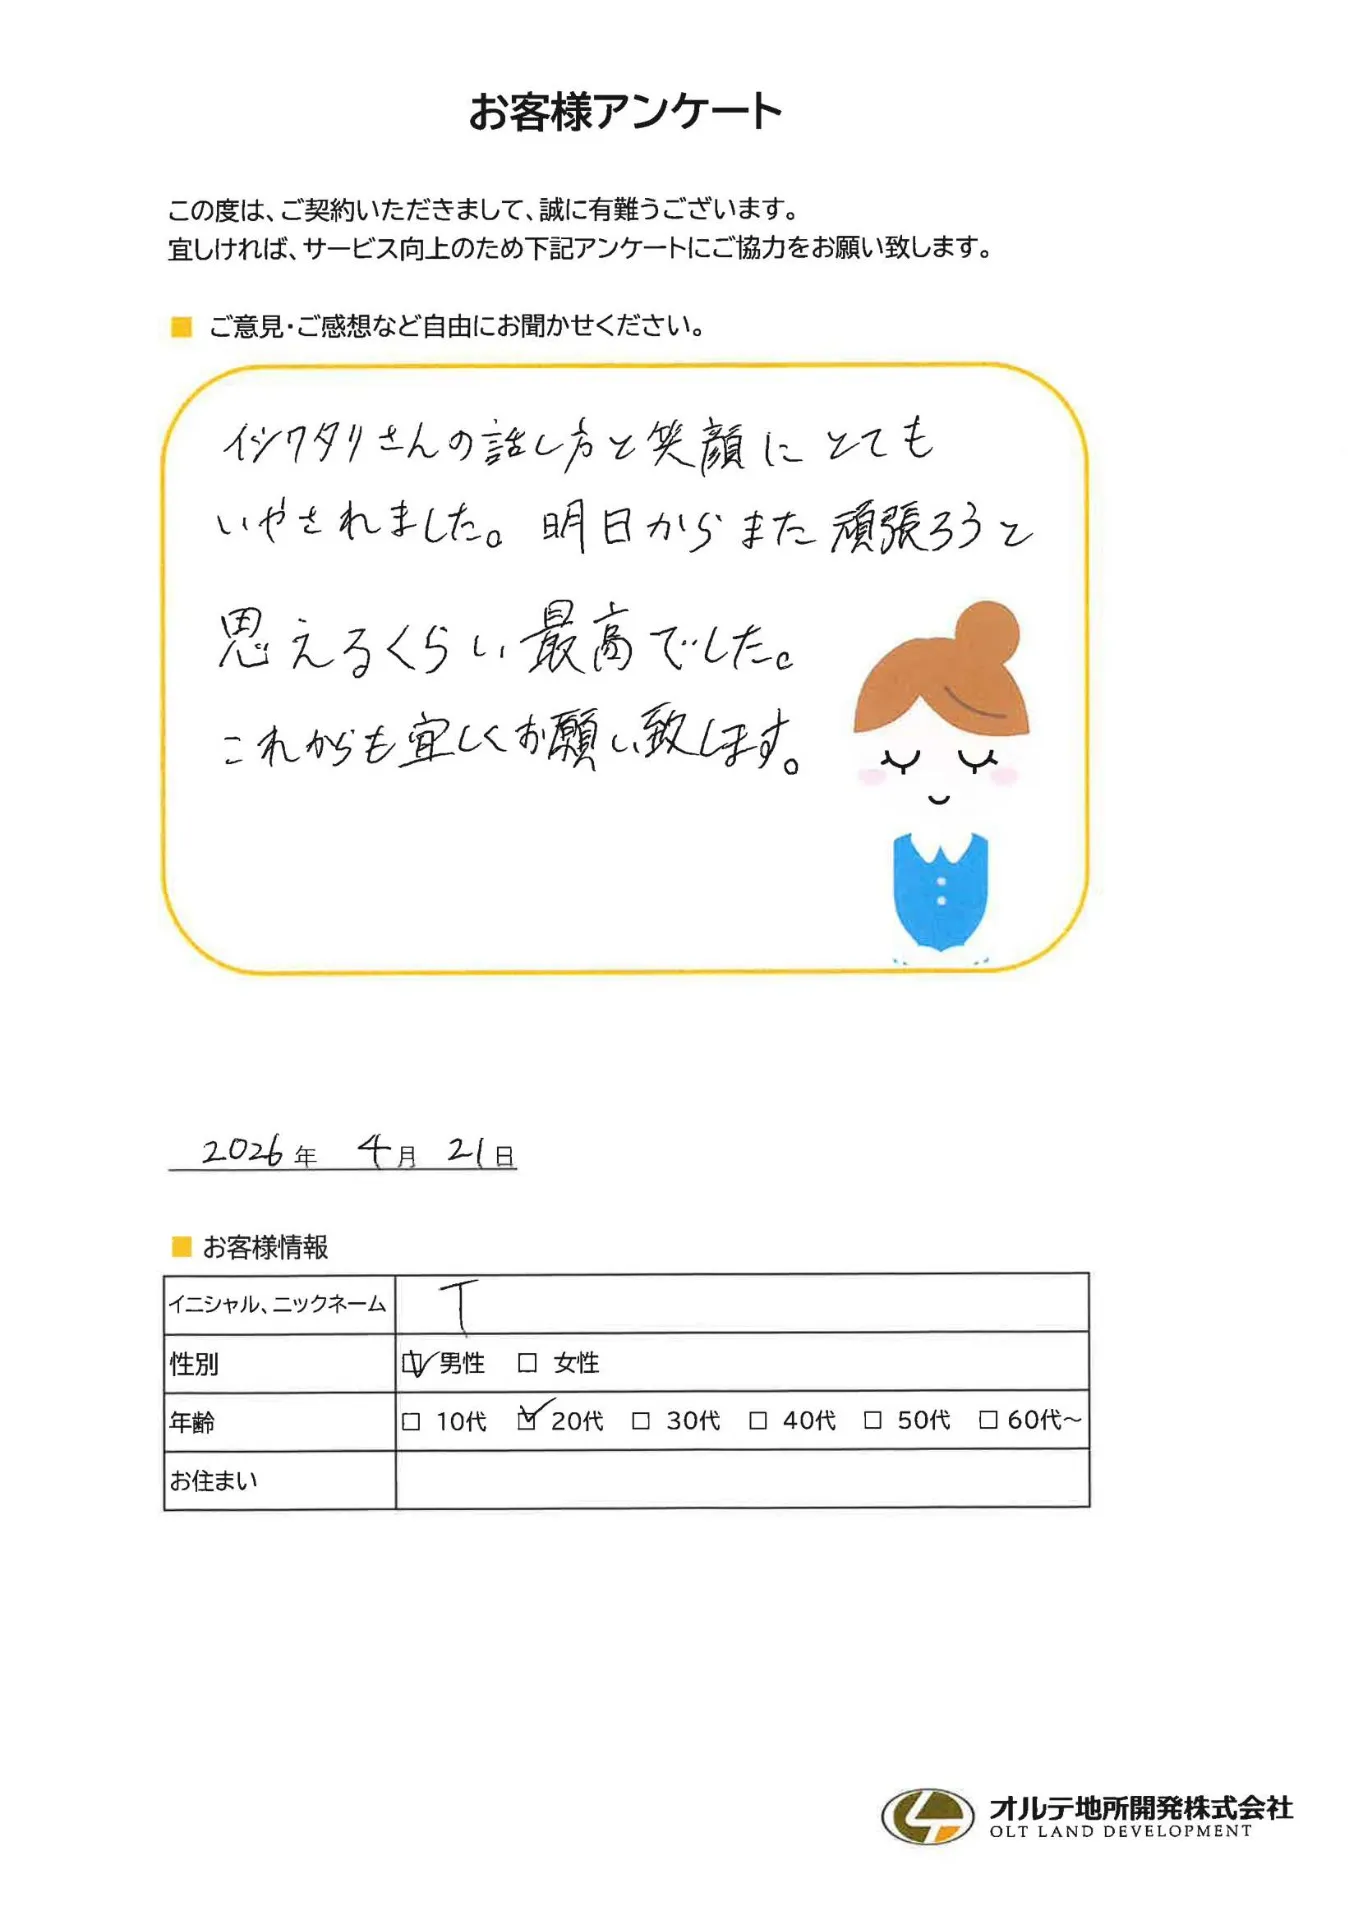 お客様アンケート
この度は、ご契約いただきまして、誠に有難うございます。
宜しければ、サービス向上のため下記アンケートにご協力をお願い致します。
■ ご意見・ご感想など自由にお聞かせください。
イシワタリさんの話し方と笑顔にとても
いやされました。明日からまた頑張ろうと
思えるくらい最高でした。
これからも宜しくお願い致します。
2026年 4月 21日
■ お客様情報
イニシャル、ニックネーム T
性別 ☑ 男性 □ 女性
年齢 □ 10代 ☑ 20代 □ 30代 □ 40代 □ 50代 □ 60代～
お住まい
オルテ地所開発株式会社
OLT LAND DEVELOPMENT